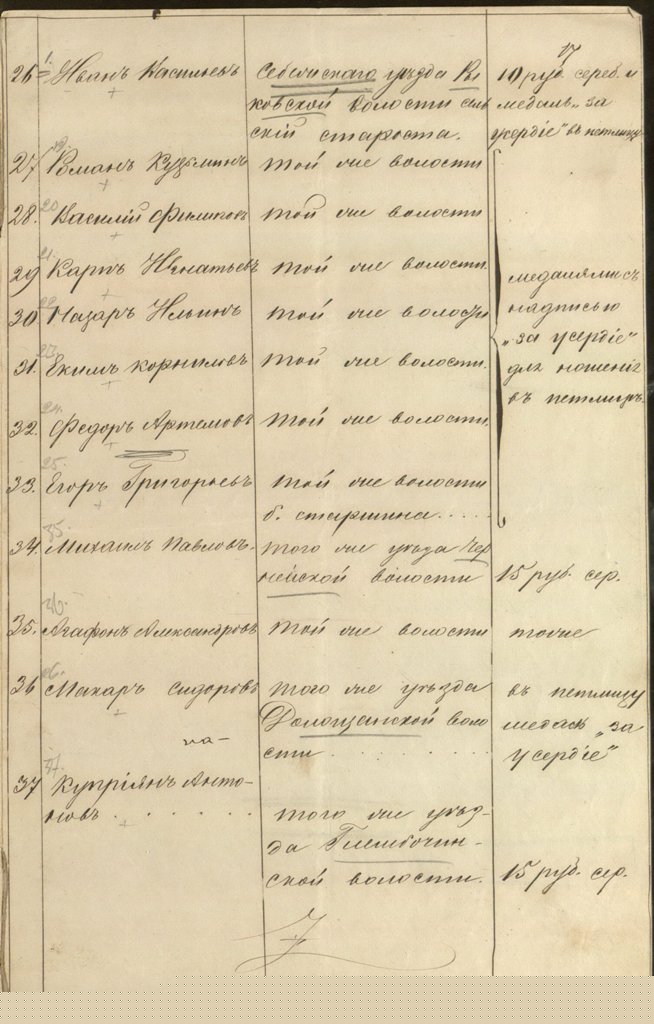 17
26 Иванъ Васильевъ Себежскаго уѣзда Вы 10 руб. сереб. и
ковской волости сель медаль „за
скій староста. усердіе" въ петлицу
27 Романъ Кузьминъ той же волости
28. Василій Филиповъ той же волости
29 Карпъ Игнатьевъ той же волости.
30 Назаръ Ильинъ той же волости
31. Екимъ Корниловъ той же волости.
32. Федоръ Артемовъ той же волости.
33. Егоръ Григорьевъ той же волости
б. старшина.....
медалями съ
надписью
„за усердіе"
для ношенія
въ петлицѣ.
34. Михаилъ Павловъ. того же уѣзда Чер
нейской волости 15 руб. сер.
35. Агафонъ Александровъ той же волости тоже
36 Макаръ Сидоровъ того же уѣзда въ петлицу
Долощанской воло медаль „за
сти . . . . . усердіе"
на-
37 Купріянъ Анто-
новъ . . . . . того же уѣз-
да Глембочин-
ской волости. 15 руб. сер.